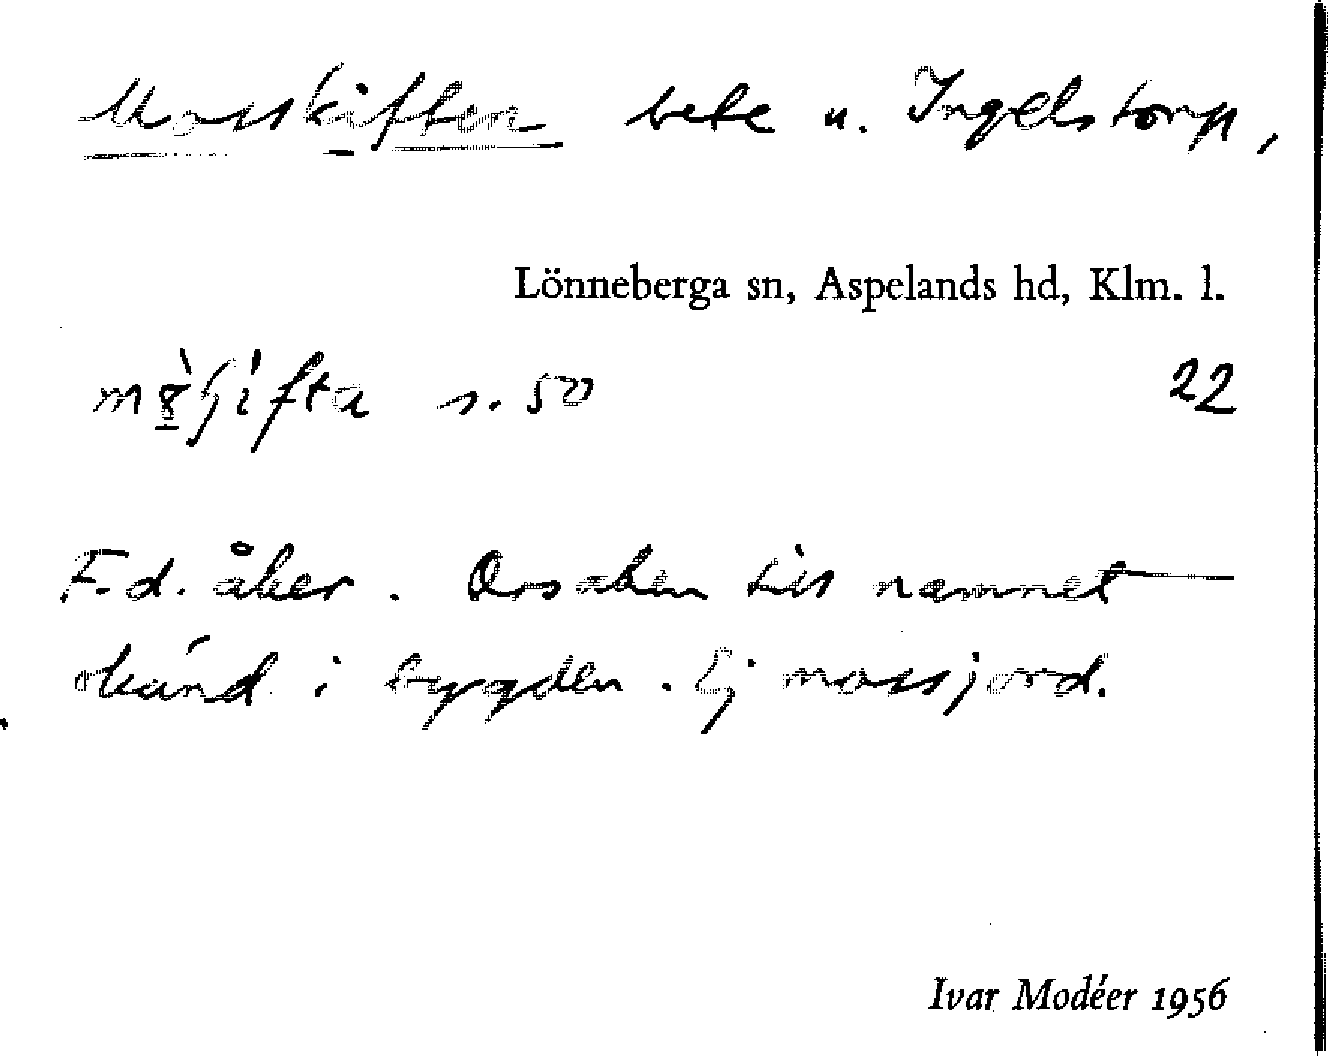 Mosskiften bete u. Ingelstorp,
Lönneberga sn, Aspelands hd, Klm. l.
s. 50 22
F.d. åker. Orsaken till namnet
okänd i bygden. Ej mossjord.
Ivar Modéer 1956